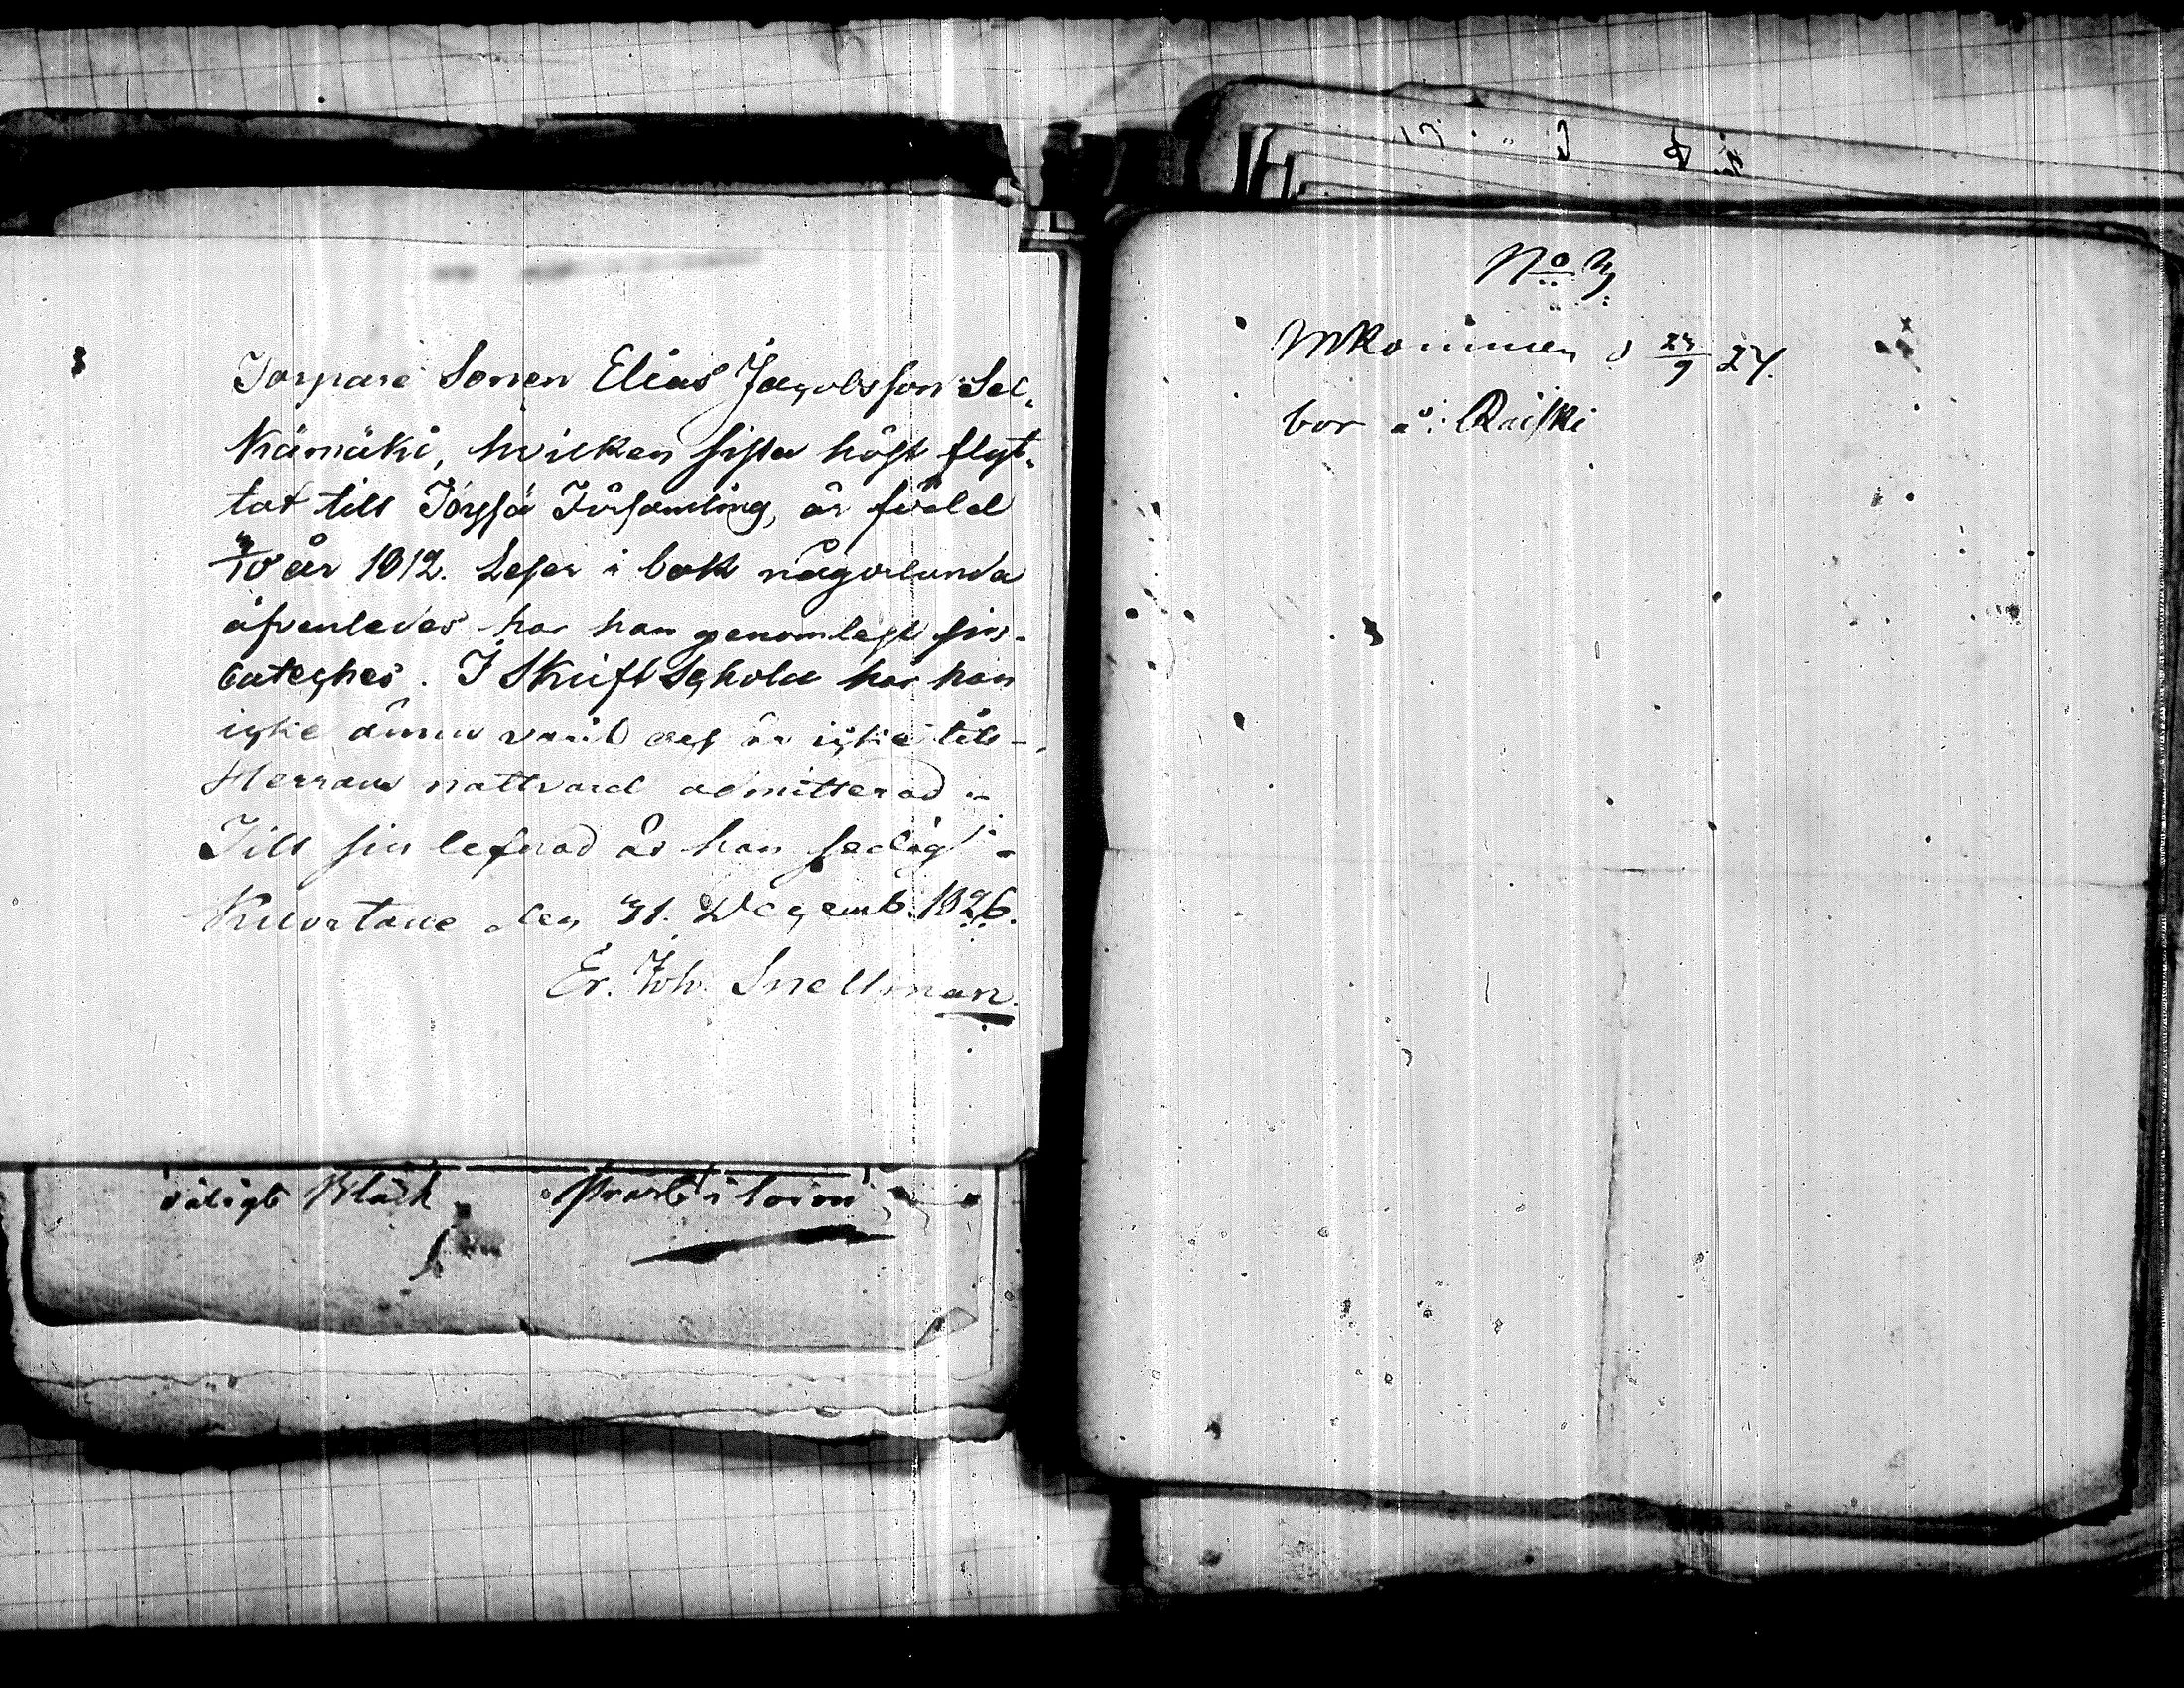 Torpare Sonen Elias Jacobsson Sel,
kämäki, hvilken sista höst flyt,
tat till Töysä Församling, är född
3/10 år 1812. Leser i bok någorlunda
äfvenledes har han genomlest sin
cateches. I Skriftschola har han
icke ännu varit och är icke till
Herrans nattvard admitterad
Till sin lefnad är han sedig
Kuortane den 31. Decemb. 1826.
Er. Joh. Snellman.
dåligt Bläck
No 3
Inkommen d 23/9 27.
bor å: Raiski